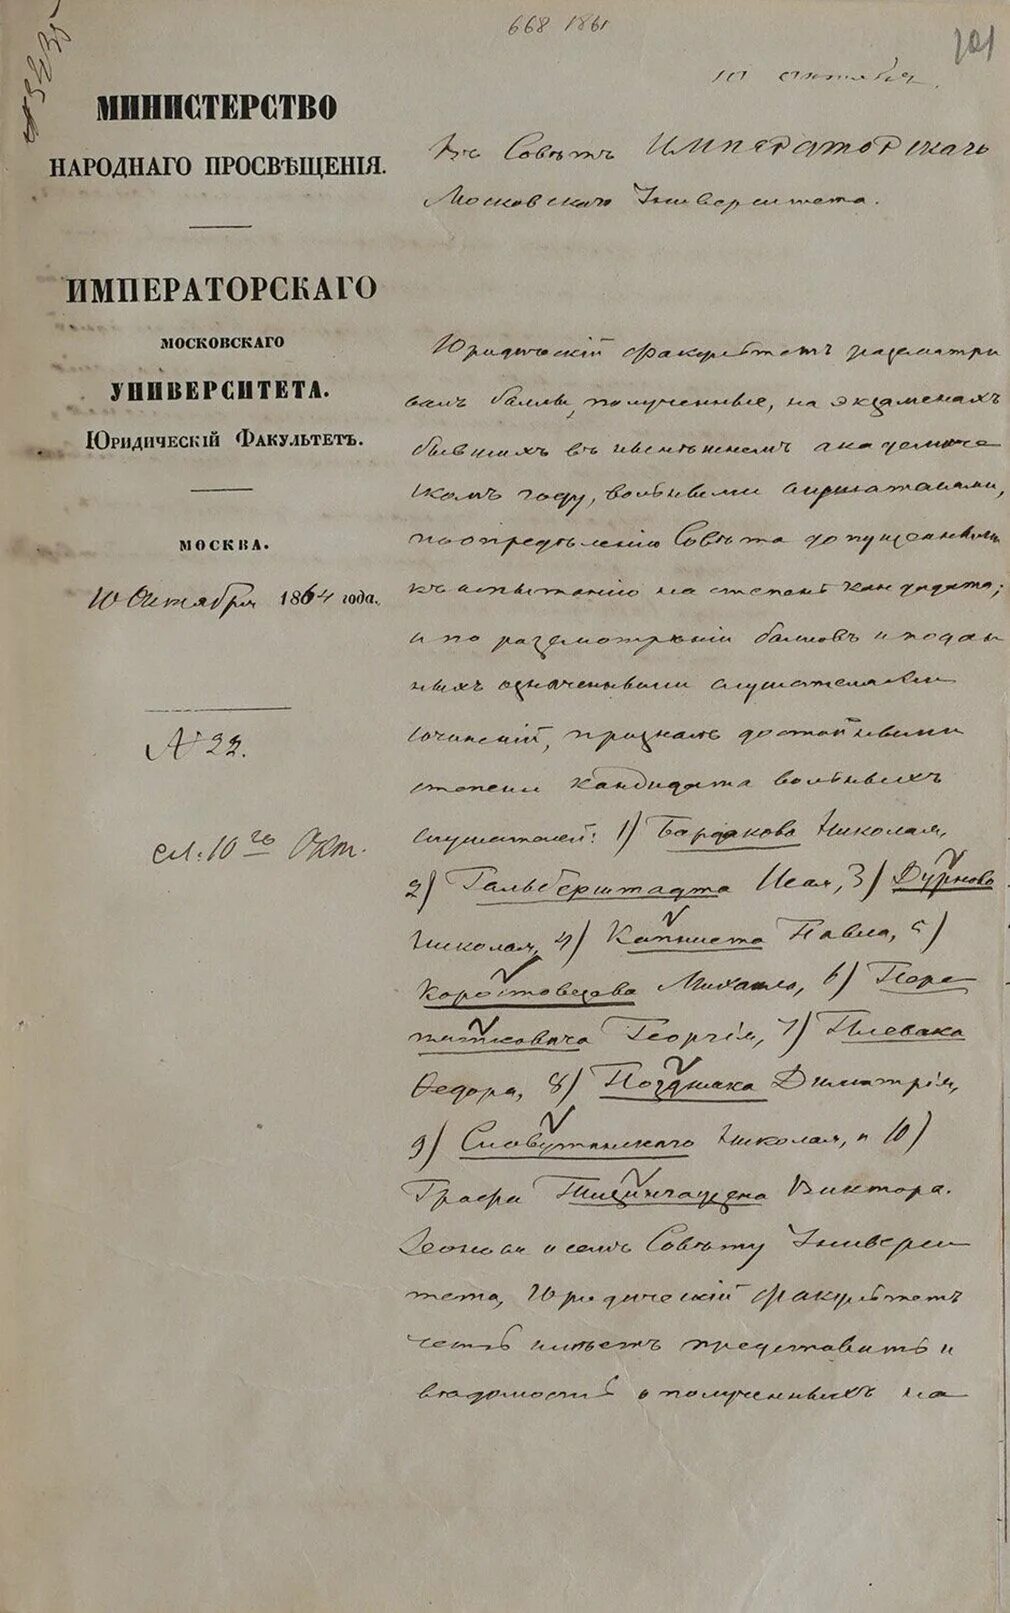 668 1861
101
10 октября.
МИНИСТЕРСТВО
НАРОДНАГО ПРОСВѢЩЕНІЯ.
ИМПЕРАТОРСКАГО
МОСКОВСКАГО
УНИВЕРСИТЕТА.
ЮРИДИЧЕСКІЙ ФАКУЛЬТЕТЪ.
МОСКВА.
10 Октября 1864 года.
№ 22.
сл. 10го Окт.
Въ Совѣтъ Императорскаго
Московскаго Университета.
Юридическій Факультетъ разсматри
валъ баллы, полученные, на экзаменахъ
бывшихъ въ нынѣшнемъ академиче
скомъ году, вольными слушателями,
по опредѣленію Совѣта допущенными
къ испытанію на степень кандидата;
и по разсмотрѣніи балловъ и подан
ныхъ означенными слушателями
сочиненій, призналъ достойными
степени кандидата вольныхъ
слушателей: 1) Бардакова Николая,
2) Гальберштадта Исая, 3) Дурново
Николая, 4) Капниста Павла, 5)
Коростовцева Михаила, 6) Пере
пятковича Георгія, 7) Плевака
Ѳедора, 8) Позднака Димитрія,
9) Словутинскаго Николая, и 10)
Графа Тизенгаузена Викторa.
Донося о семъ Совѣту Универси
тета, Юридическій Факультетъ
честь имѣетъ представить и
вѣдомости о полученныхъ на